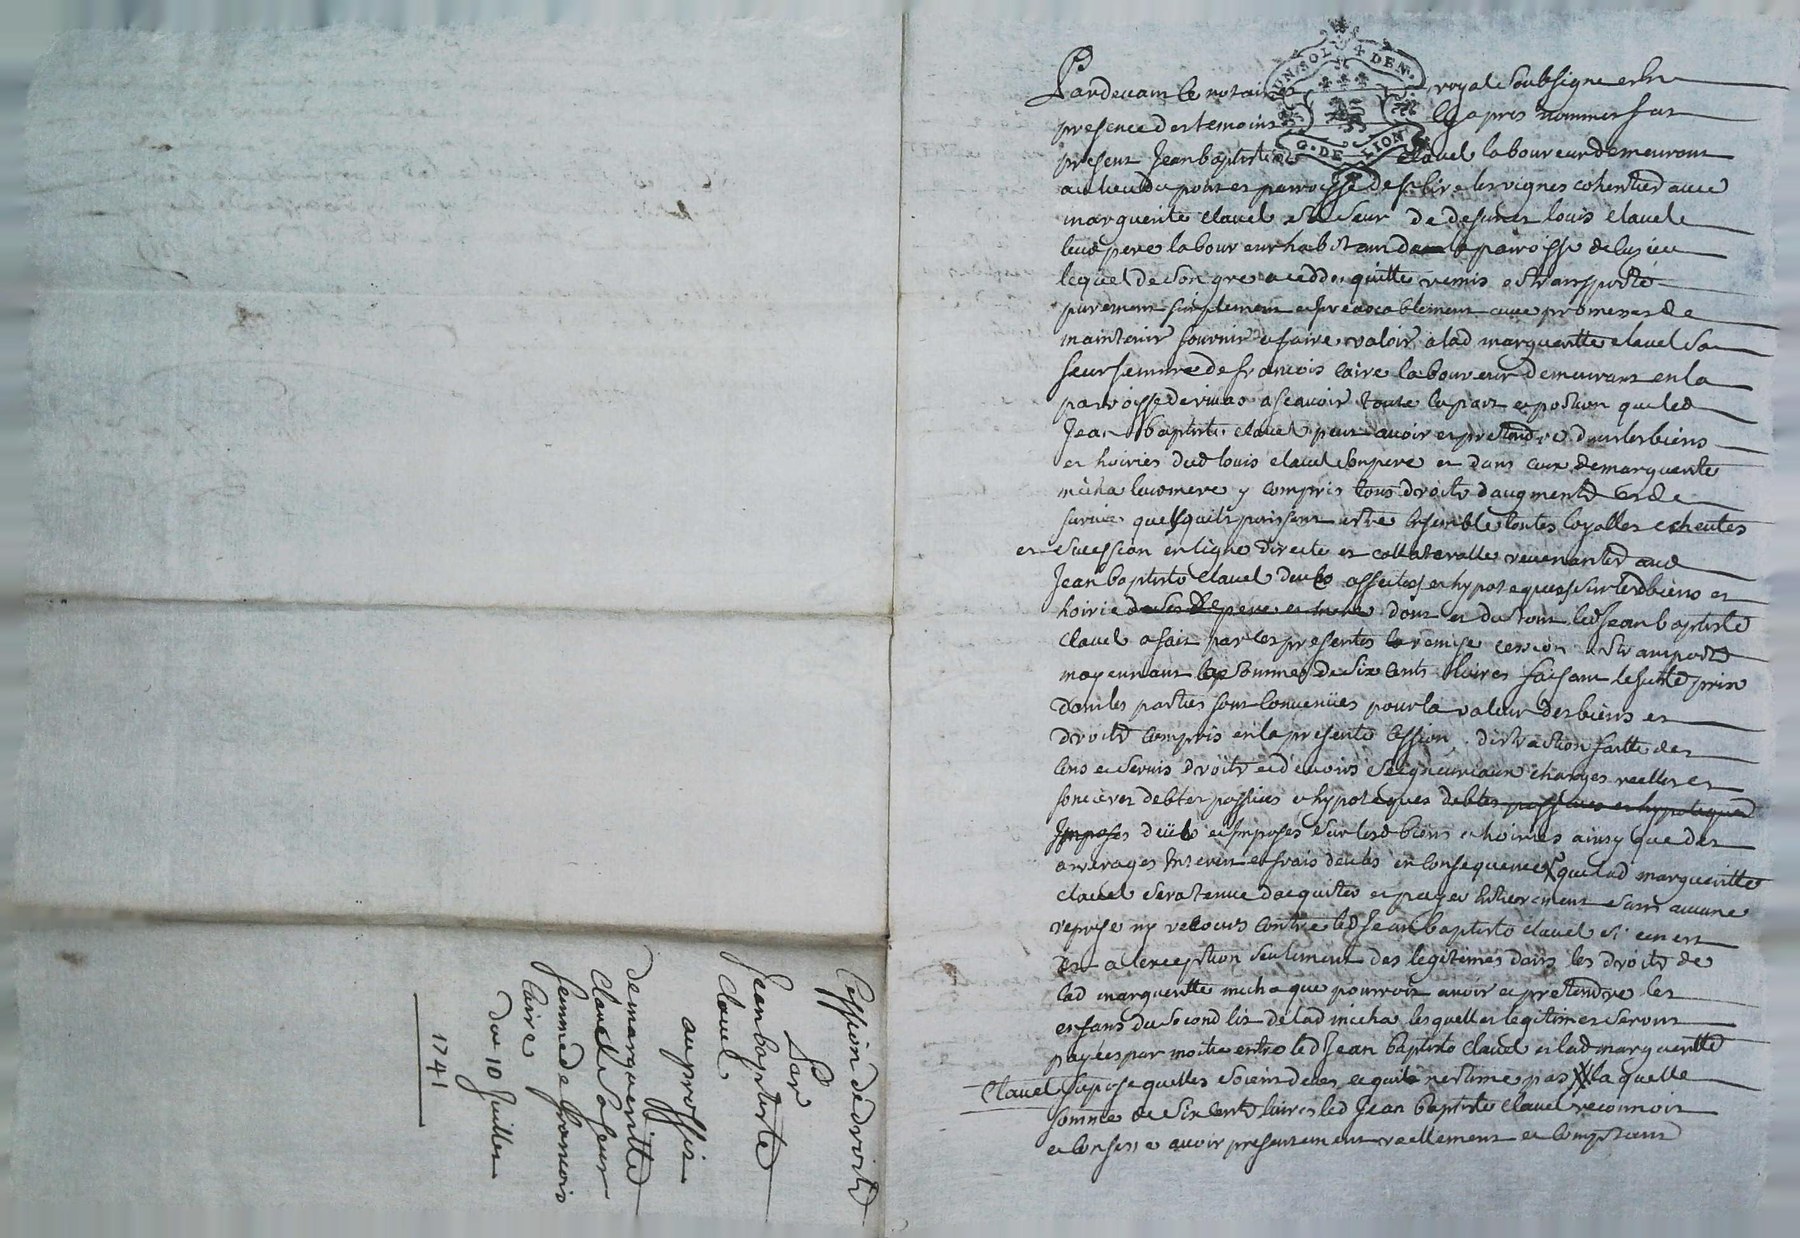 Cession de droits
Par
Jean baptiste
Clavel
au proffit
de margueritte
Clavel sa seur
femme de francois
Caire
du 10 Juillet
1741
UN SOL 4 DEN.
G. DE LION
Pardevant le notaire royal soubsigné et en
presence des temoins cy apres nommes fut
present Jean baptiste Clavel laboureur demeurant
au lieu du pont et parroisse de les vignes coheritier avec
marguerite Clavel sa seur de deffunct louis Clavel
leur pere laboureur habitant de la parroisse de
lequel de son gré a ceddé, quitté remis et transporté
purement simplement et irrevocablement avec promesse de
maintenir fournir et faire valoir a lad margueritte Clavel sa
seur femme de francois Caire laboureur demeurant en la
parroisse de a scavoir toute la part et portion que led
Jean baptiste Clavel peut avoir et pretendre dans les biens
et hoiries dud louis Clavel son pere et dans ceux de marguerite
micha leur mere y compris tous droits d'augment et de
survie quelsquils puissent estre ensemble toutes loyalles echeutes
et sucession en ligne directe et collateralle revenantes aud
Jean baptiste Clavel deubs affectes et hypoteques sur lesd biens et
hoirie de ses pere et mere dont et du tout led Jean baptiste
Clavel a fait par ces presentes la remise cession et transport
moyennant la somme de six cents livres faisant le juste prix
dont les parties sont convenües pour la valeur des biens et
droits compris en la presente cession, distraction faitte des
cens et servis droits et devoirs seigneuriaux charges reelles et
foncieres debtes passives et hypoteques debtes passives et hypoteques
Imposes deübs et imposes sur lesd biens et hoiries ainsy que des
arrerages interets et frais deubs en consequence que lad marguerittte
Clavel sera tenue d'acquitter et payer entierement sans aucune
reprise ny recours contre led Jean baptiste Clavel si ce n'est
et a lexception seulement des legitimes dans les droits de
lad marguerite micha que pourroit avoir et pretendre les
enfans du second lit de lad micha lesquelles legitimes seront
payées par moitié entre led Jean baptiste Clavel et lad marguerittte
Clavel supose quelles soient deues ce quil n'estime pas laquelle
somme de six cents livres led Jean baptiste Clavel reconnoit
et confesse avoir presentement reellement et comptant